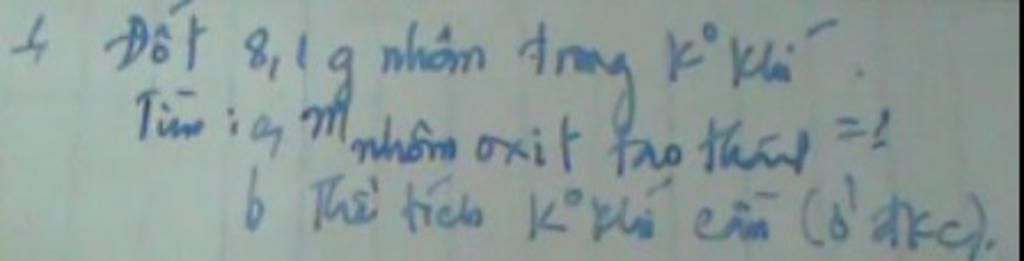 1, Đốt 8,1 g nhôm trong k° khí.
Tìm : a, m nhôm oxit tạo thành = ?
b Thể tích k° khí cần (ở đkc).